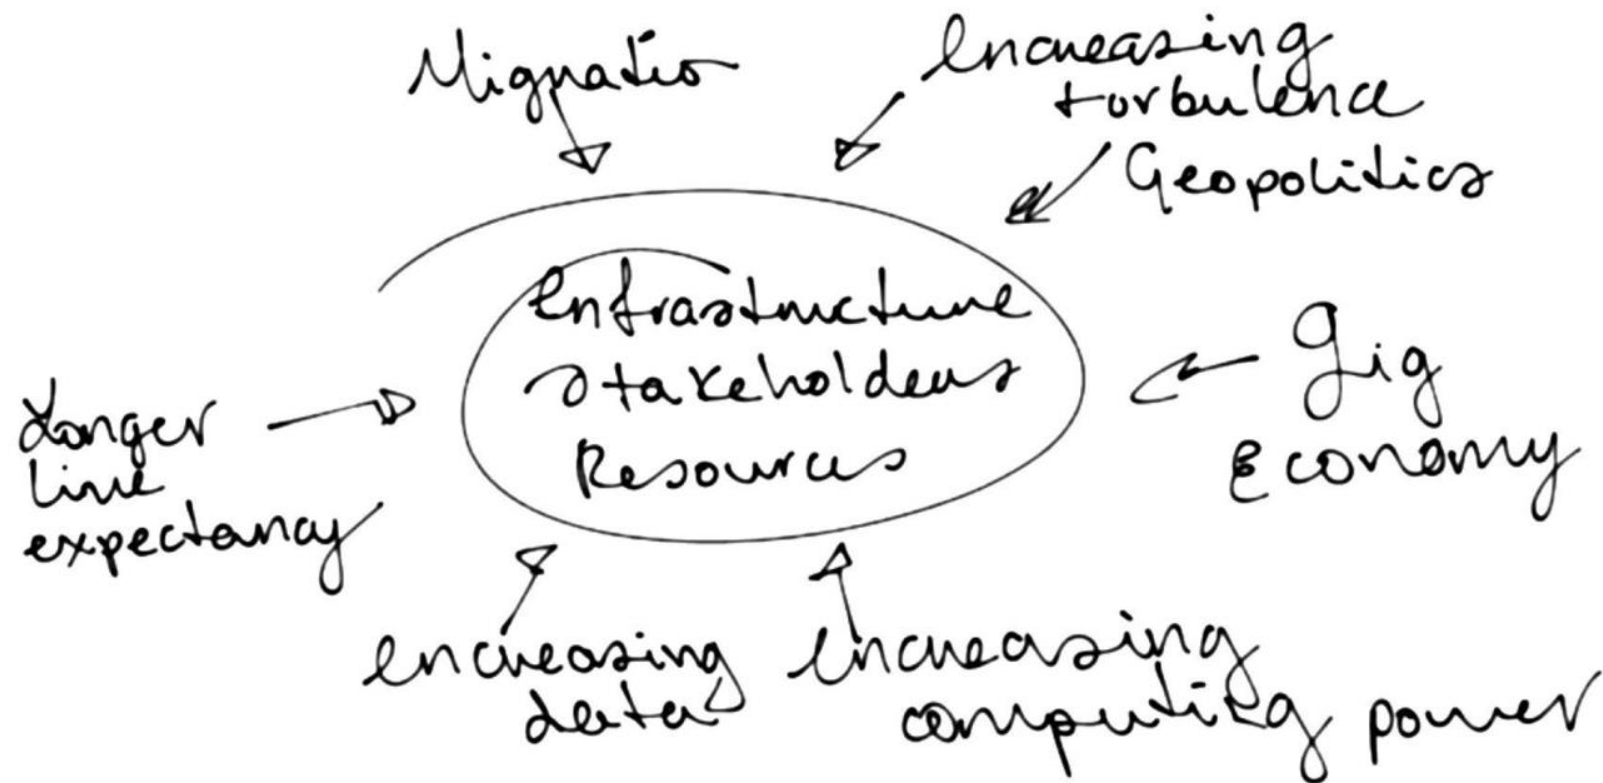 Migratio
Increasing
turbulence
Geopolitics
Infrastructure
Stakeholders
Resources
Gig
Economy
Longer
live
expectancy
increasing
data
Increasing
computing power